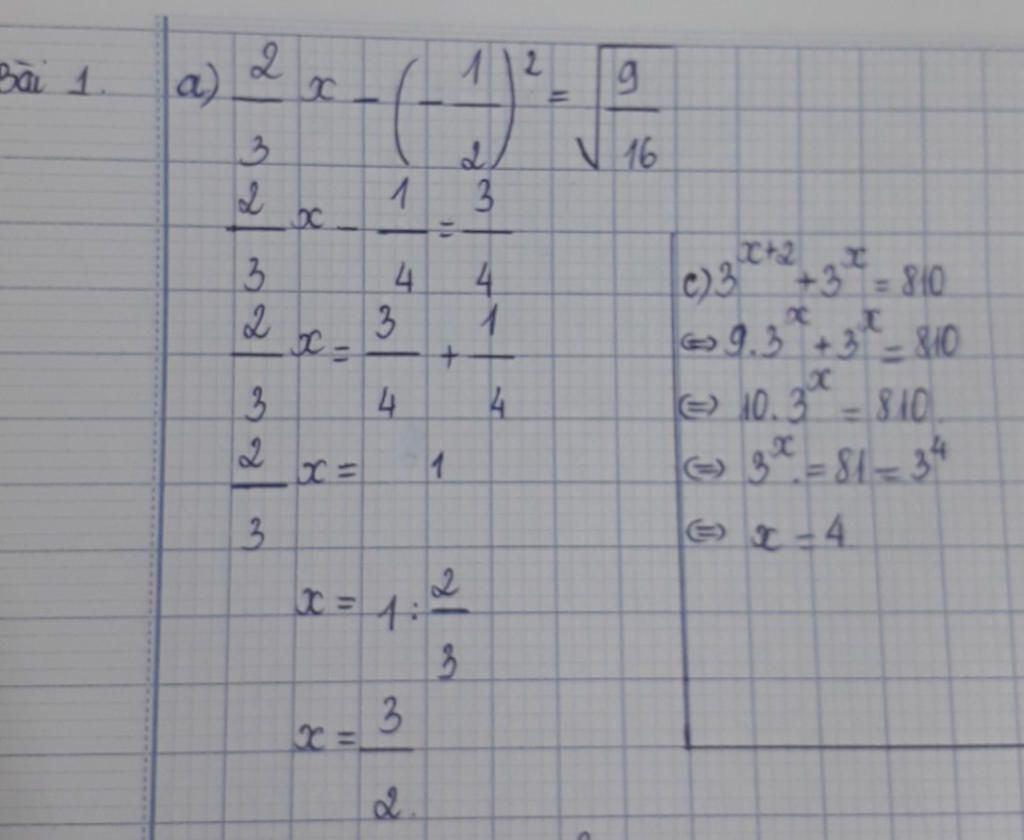 Bài 1. a) 2/3 x - (-1/2)² = √(9/16)
2/3 x - 1/4 = 3/4
2/3 x = 3/4 + 1/4
2/3 x = 1
x = 1 : 2/3
x = 3/2.
c) 3^(x+2) + 3^x = 810
⇔ 9.3^x + 3^x = 810
⇔ 10.3^x = 810.
⇔ 3^x. = 81 = 3^4
⇔ x = 4